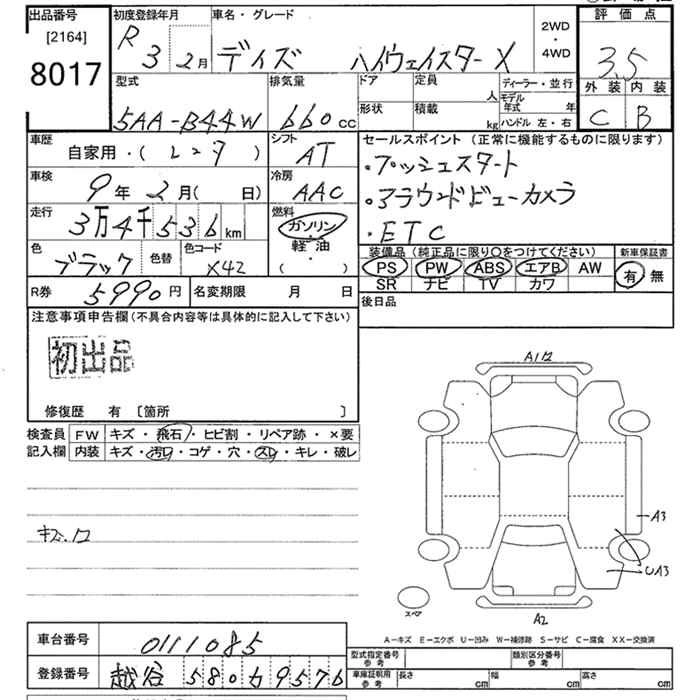 出品番号 初度登録年月 車名・グレード 2WD・4WD 評価点
[2164]
8017
R 3 2月 デイズ ハイウェイスター X 3.5
型式 排気量 ドア 定員 人 ディーラー・並行 外装 内装
形状 積載 kg モデル年式 年 ハンドル 左・右
5AA-B44W 660cc C B
車歴 自家用・( ) シフト AT
セールスポイント(正常に機能するものに限ります)
・プッシュスタート
・アラウンドビューカメラ
・ETC
車検 9年 2月( 日) 冷房 AAC
走行 3万4千536km 燃料 ガソリン 軽油 (・)
色 ブラック 色替 色コード X42
装備品(純正品に限り○をつけてください) 新車保証書
PS PW ABS エアB AW 有 無
SR ナビ TV カワ
R券 5990円 名変期限 月 日
後日品
注意事項申告欄(不具合内容等は具体的に記入して下さい)
初出品
修復歴 有 [箇所 ]
検査員 FW キズ・飛石・ヒビ割・リペア跡・×要
記入欄 内装 キズ・汚れ・コゲ・穴・スレ・キレ・破レ
A1
A3
UA3
A2
スペア
A-キズ E-エクボ U-凹み W-補修跡 S-サビ C-腐食 XX-交換済
車台番号 0111085
登録番号 越谷 580 9576
型式指定番号 参考 類別区分番号 参考
車庫証明用 参考 長さ cm 幅 cm 高さ cm